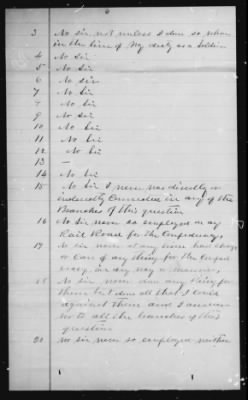 6
3 No sir not unless I done so when
in the line of my duty as a Soldier
4 No Sir
5 No Sir
6 No sir
7 No Sir
7 No Sir
9 No sir
10 No Sir
11 No Sir
12 No Sir
13 —
14 No Sir
15 No Sir I never was directly or
indirectly Connected in any of the
Branches of this question
16 No Sir never so employed on any
Rail Road for the Confederacy
17 No sir never at any time had charge
or Care of any thing for the
in any way or manner.
18 No Sir never done any thing for
them but done all that I could
against them and I answer
no to all the branches of this
question
20 No sir never so employed neither